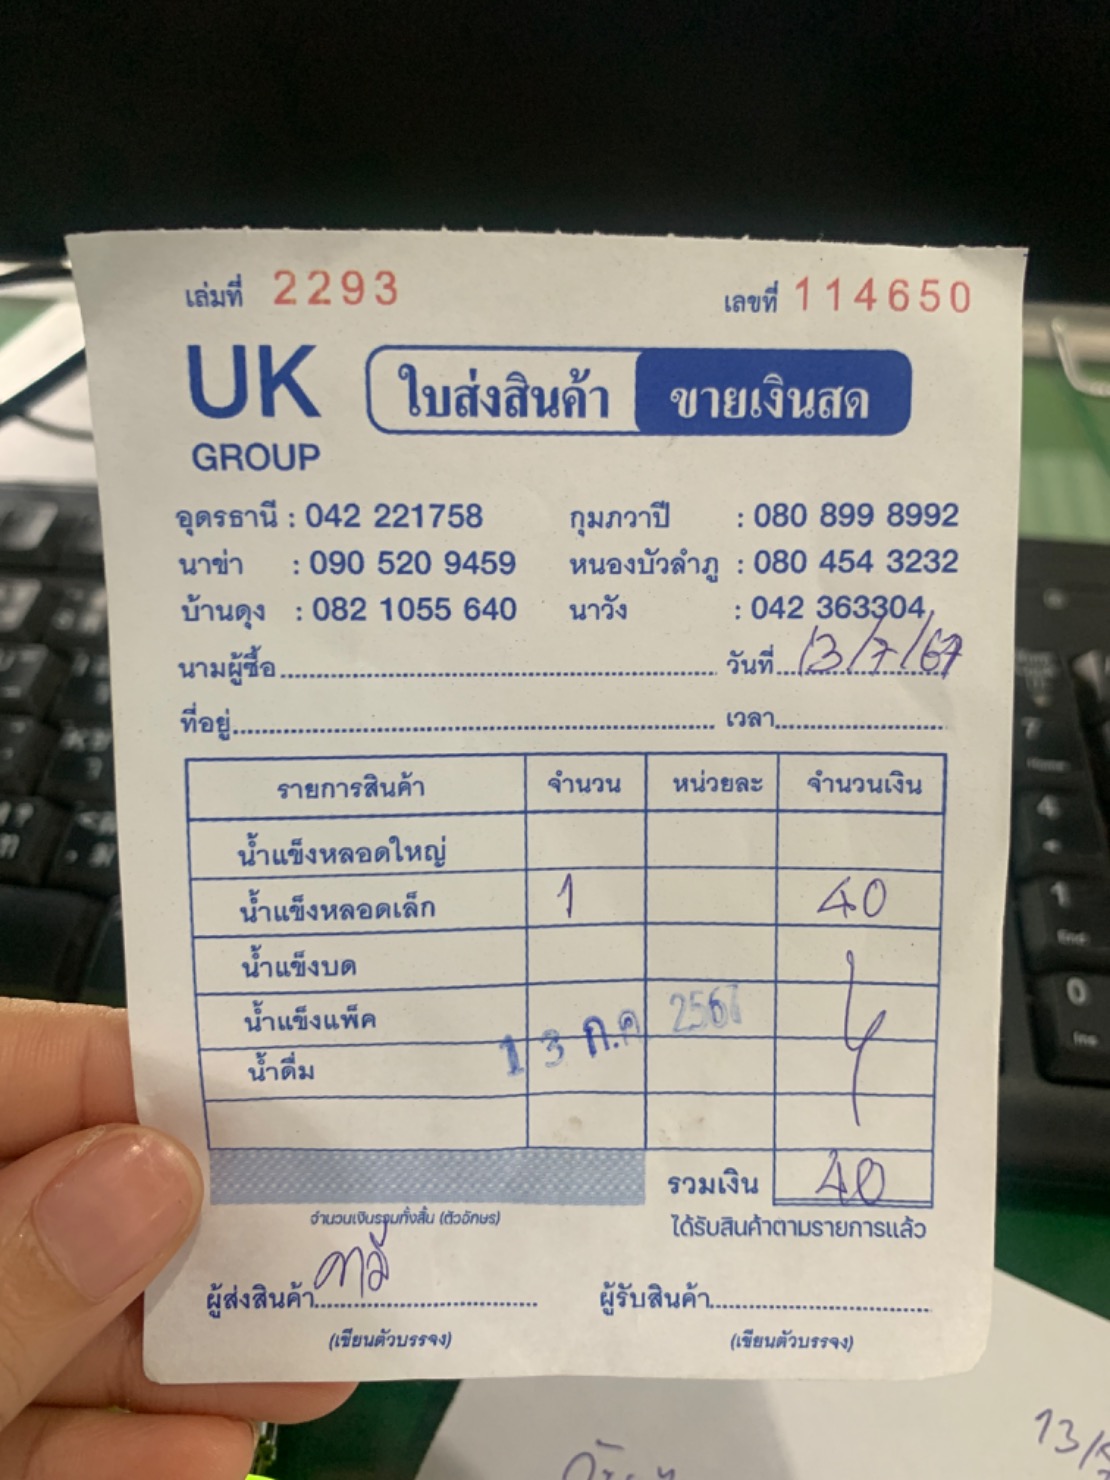 เล่มที่ 2293 เลขที่ 114650
UK GROUP
ใบส่งสินค้า ขายเงินสด
อุดรธานี : 042 221758 กุมภวาปี : 080 899 8992
นาข่า : 090 520 9459 หนองบัวลำภู : 080 454 3232
บ้านดุง : 082 1055 640 นาวัง : 042 363304
นามผู้ซื้อ วันที่ 13/7/67
ที่อยู่ เวลา
รายการสินค้า จำนวน หน่วยละ จำนวนเงิน
น้ำแข็งหลอดใหญ่
น้ำแข็งหลอดเล็ก 1 40
น้ำแข็งบด
น้ำแข็งแพ็ค
13 ก.ค 2567
น้ำดื่ม
รวมเงิน 40
จำนวนเงินรวมทั้งสิ้น (ตัวอักษร) ได้รับสินค้าตามรายการแล้ว
ผู้ส่งสินค้า ผู้รับสินค้า
(เขียนตัวบรรจง) (เขียนตัวบรรจง)